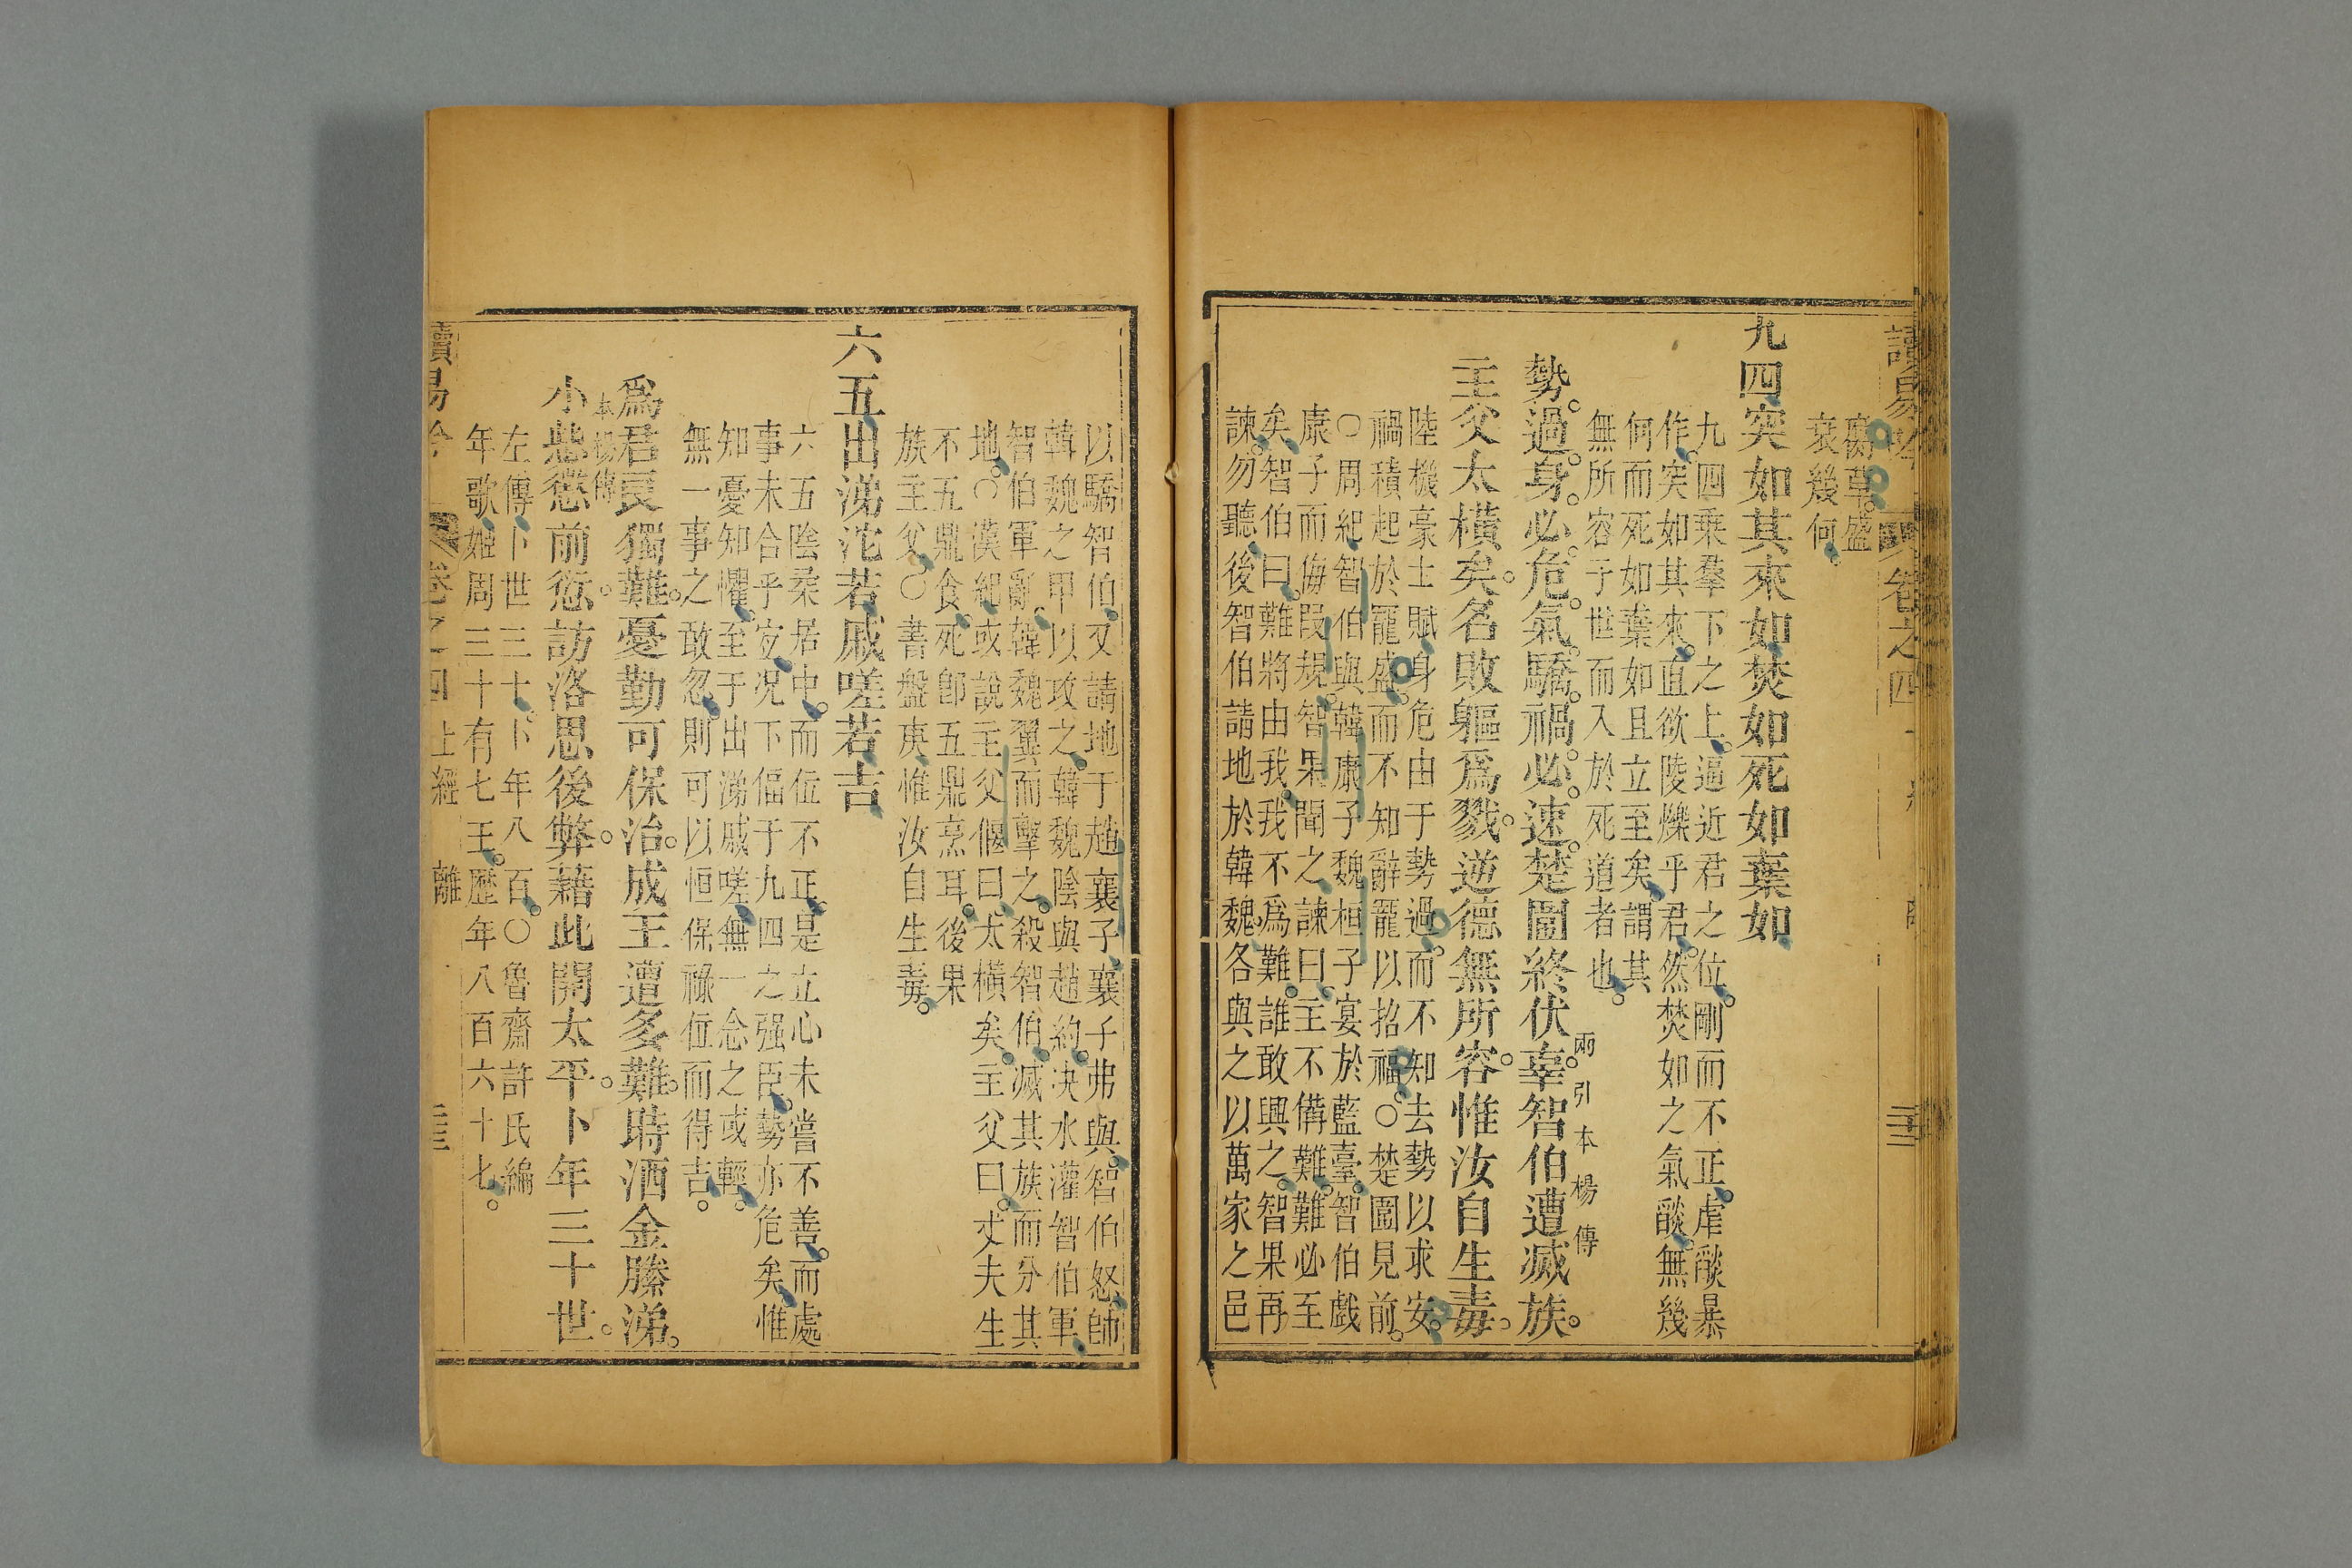 讀易 卷之四
腐草盛
衰幾何
九四突如其來如焚如死如棄如
九四乗羣下之上逼近君之位剛而不正虐燄暴
作突如其來直欲陵爍乎君然焚如之氣燄無幾
何而死如葉如且立至矣謂其
無所容于世而入於死道者也
勢過身必危氣驕禍必速楚圍終伏辜智伯遭滅族
兩引本楊傳
主父太橫矣名敗軀爲戮逆德無所容惟汝自生毒
陸機豪士賦身危由于勢過而不知去勢以求安
禍積起於寵盛而不知辭寵以招福○楚圍見前
○周紀智伯與韓康子魏桓子宴於藍臺智伯戲
康子而侮段規智果聞之諫曰主不備難難必至
矣智伯曰難將由我我不爲難誰敢興之智果再
諫勿聽後智伯請地於韓魏各與之以萬家之邑
以驕智伯又請地于趙襄子襄子弗與智伯怒帥
韓魏之甲以攻之韓魏陰與趙約决水灌智伯軍
智伯軍亂韓魏翼而擊之殺智伯滅其族而分其
地○漢紀或說主父偃曰太橫矣主父曰丈夫生
不五鼎食死即五鼎烹耳後果
族主父○書盤庚惟汝自生毒
六五出涕沱若戚嗟若吉
六五陰柔居中而位不正是立心未嘗不善而處
事未合乎宜况下偪于九四之强臣勢亦危矣惟
知憂知懼至于出涕戚嗟無一念之或輕
無一事之敢忽則可以恒保祿位而得吉
爲君良獨難憂勤可保治成王遭多難時洒金縢涕
本楊傳
小毖懲前愆訪洛思後弊藉此開太平卜年三十世
左傳卜世三十卜年八百○魯齋許氏編
年歌姬周三十有七王歷年八百六十七
讀易 卷之四 上經 離